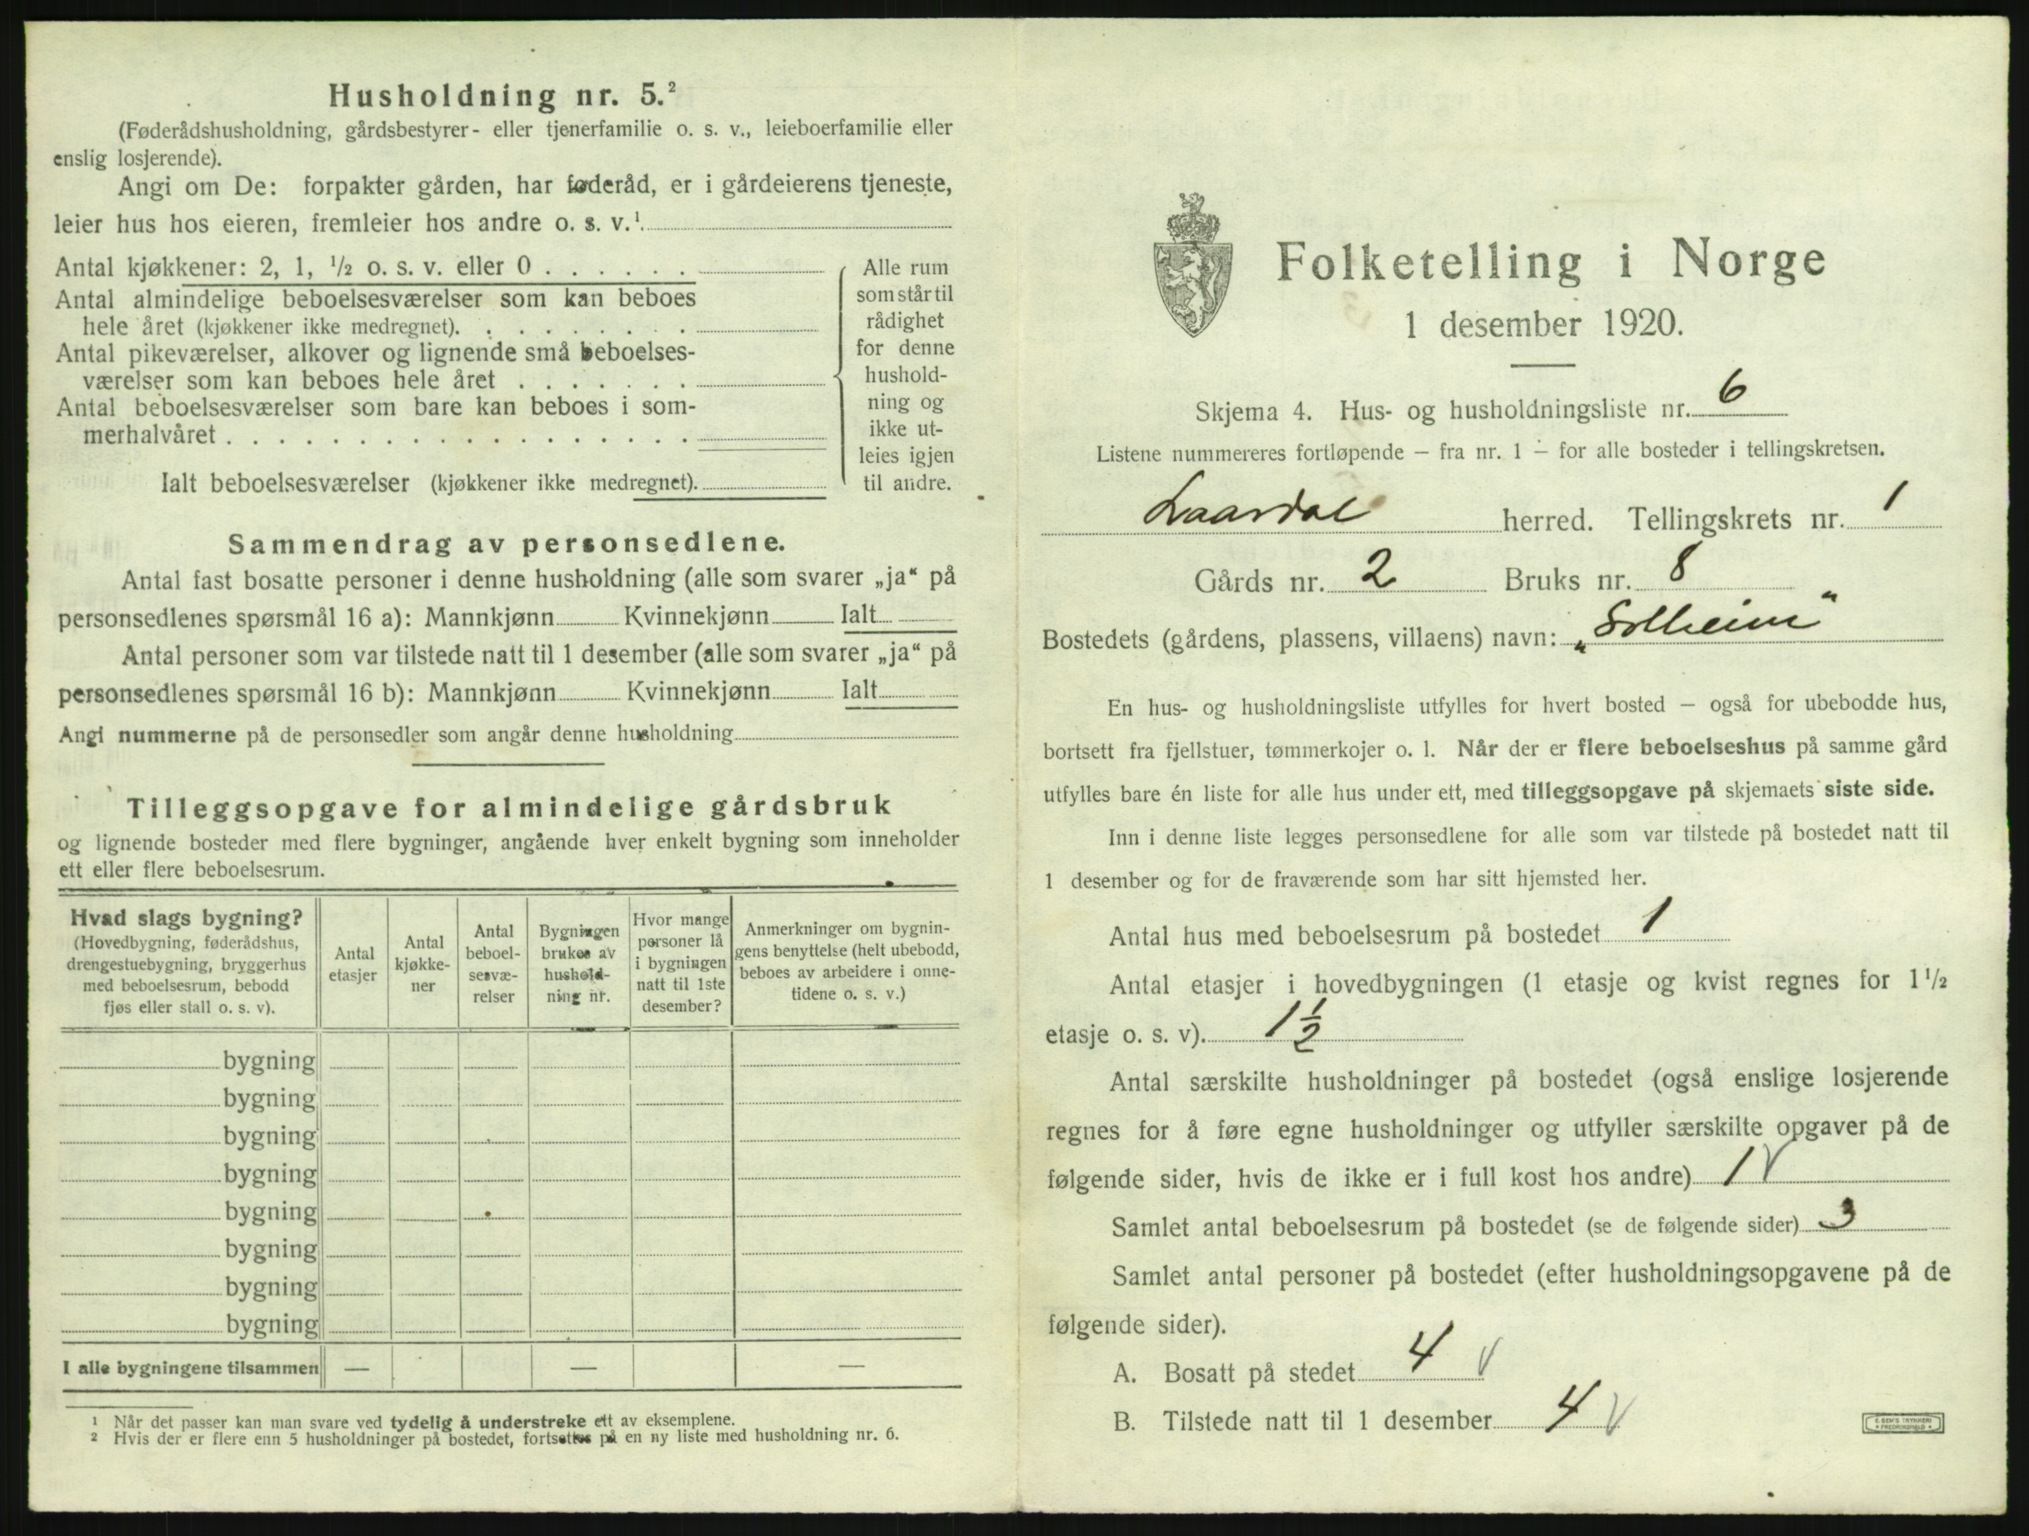 Husholdning nr. 5.²
(Føderådshusholdning, gårdsbestyrer- eller tjenerfamilie o. s. v., leieboerfamilie eller
enslig losjerende).
Angi om De: forpakter gården, har føderåd, er i gårdeierens tjeneste,
leier hus hos eieren, fremleier hos andre o. s. v.¹
Antal kjøkkener: 2, 1, ½ o. s. v. eller 0
Antal almindelige beboelsesværelser som kan beboes
hele året (kjøkkener ikke medregnet).
Antal pikeværelser, alkover og lignende små beboelses-
værelser som kan beboes hele året
Antal beboelsesværelser som bare kan beboes i som-
merhalvåret
Ialt beboelsesværelser (kjøkkener ikke medregnet).
Alle rum
som står til
rådighet
for denne
hushold-
ning og
ikke ut-
leies igjen
til andre.
Sammendrag av personsedlene.
Antal fast bosatte personer i denne husholdning (alle som svarer „ja“ på
personsedlenes spørsmål 16 a): Mannkjønn Kvinnekjønn Ialt
Antal personer som var tilstede natt til 1 desember (alle som svarer „ja“ på
personsedlenes spørsmål 16 b): Mannkjønn Kvinnekjønn Ialt
Angi nummerne på de personsedler som angår denne husholdning
Tilleggsopgave for almindelige gårdsbruk
og lignende bosteder med flere bygninger, angående hver enkelt bygning som inneholder
ett eller flere beboelsesrum.
Hvad slags bygning?
(Hovedbygning, føderådshus,
drengestuebygning, bryggerhus
med beboelsesrum, bebodd
fjøs eller stall o. s. v).
Antal
etasjer
Antal
kjøkke-
ner
Antal
beboel-
sesvæ-
relser
Bygningen
brukes av
hushold-
ning nr.
Hvor mange
personer lå
i bygningen
natt til 1ste
desember?
Anmerkninger om bygnin-
gens benyttelse (helt ubebodd,
beboes av arbeidere i onne-
tidene o. s. v.)
bygning
bygning
bygning
bygning
bygning
bygning
bygning
bygning
I alle bygningene tilsammen — — —
¹ Når det passer kan man svare ved tydelig å understreke ett av eksemplene.
² Hvis der er flere enn 5 husholdninger på bostedet, fortsettes på en ny liste med husholdning nr. 6.
Folketelling i Norge
1 desember 1920.
Skjema 4. Hus- og husholdningsliste nr. 6
Listene nummereres fortløpende — fra nr. 1 — for alle bosteder i tellingskretsen.
Laardal herred. Tellingskrets nr. 1
Gårds nr. 2 Bruks nr. 8
Bostedets (gårdens, plassens, villaens) navn: „Solheim“
En hus- og husholdningsliste utfylles for hvert bosted — også for ubebodde hus,
bortsett fra fjellstuer, tømmerkojer o. l. Når der er flere beboelseshus på samme gård
utfylles bare én liste for alle hus under ett, med tilleggsopgave på skjemaets siste side.
Inn i denne liste legges personsedlene for alle som var tilstede på bostedet natt til
1 desember og for de fraværende som har sitt hjemsted her.
Antal hus med beboelsesrum på bostedet 1
Antal etasjer i hovedbygningen (1 etasje og kvist regnes for 1½
etasje o. s. v). 1½
Antal særskilte husholdninger på bostedet (også enslige losjerende
regnes for å føre egne husholdninger og utfyller særskilte opgaver på de
følgende sider, hvis de ikke er i full kost hos andre) 1 V
Samlet antal beboelsesrum på bostedet (se de følgende sider) 3
Samlet antal personer på bostedet (efter husholdningsopgavene på de
følgende sider).
A. Bosatt på stedet 4 V
B. Tilstede natt til 1 desember 4 V